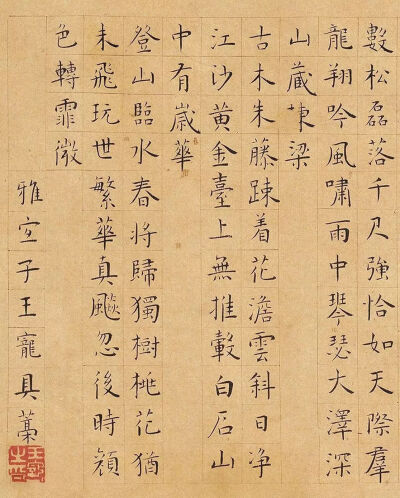 數松磊落千尺強恰如天際羣
龍翔吟風嘯雨中琴瑟大澤深
山藏棟梁
古木朱藤踈着花澹雲斜日净
江沙黄金臺上無推轂白石山
中有歲華
登山臨水春将歸獨樹桃花猶
未飛玩世繁華真飈忽後時顔
色轉霏微
雅宜子王寵具藁